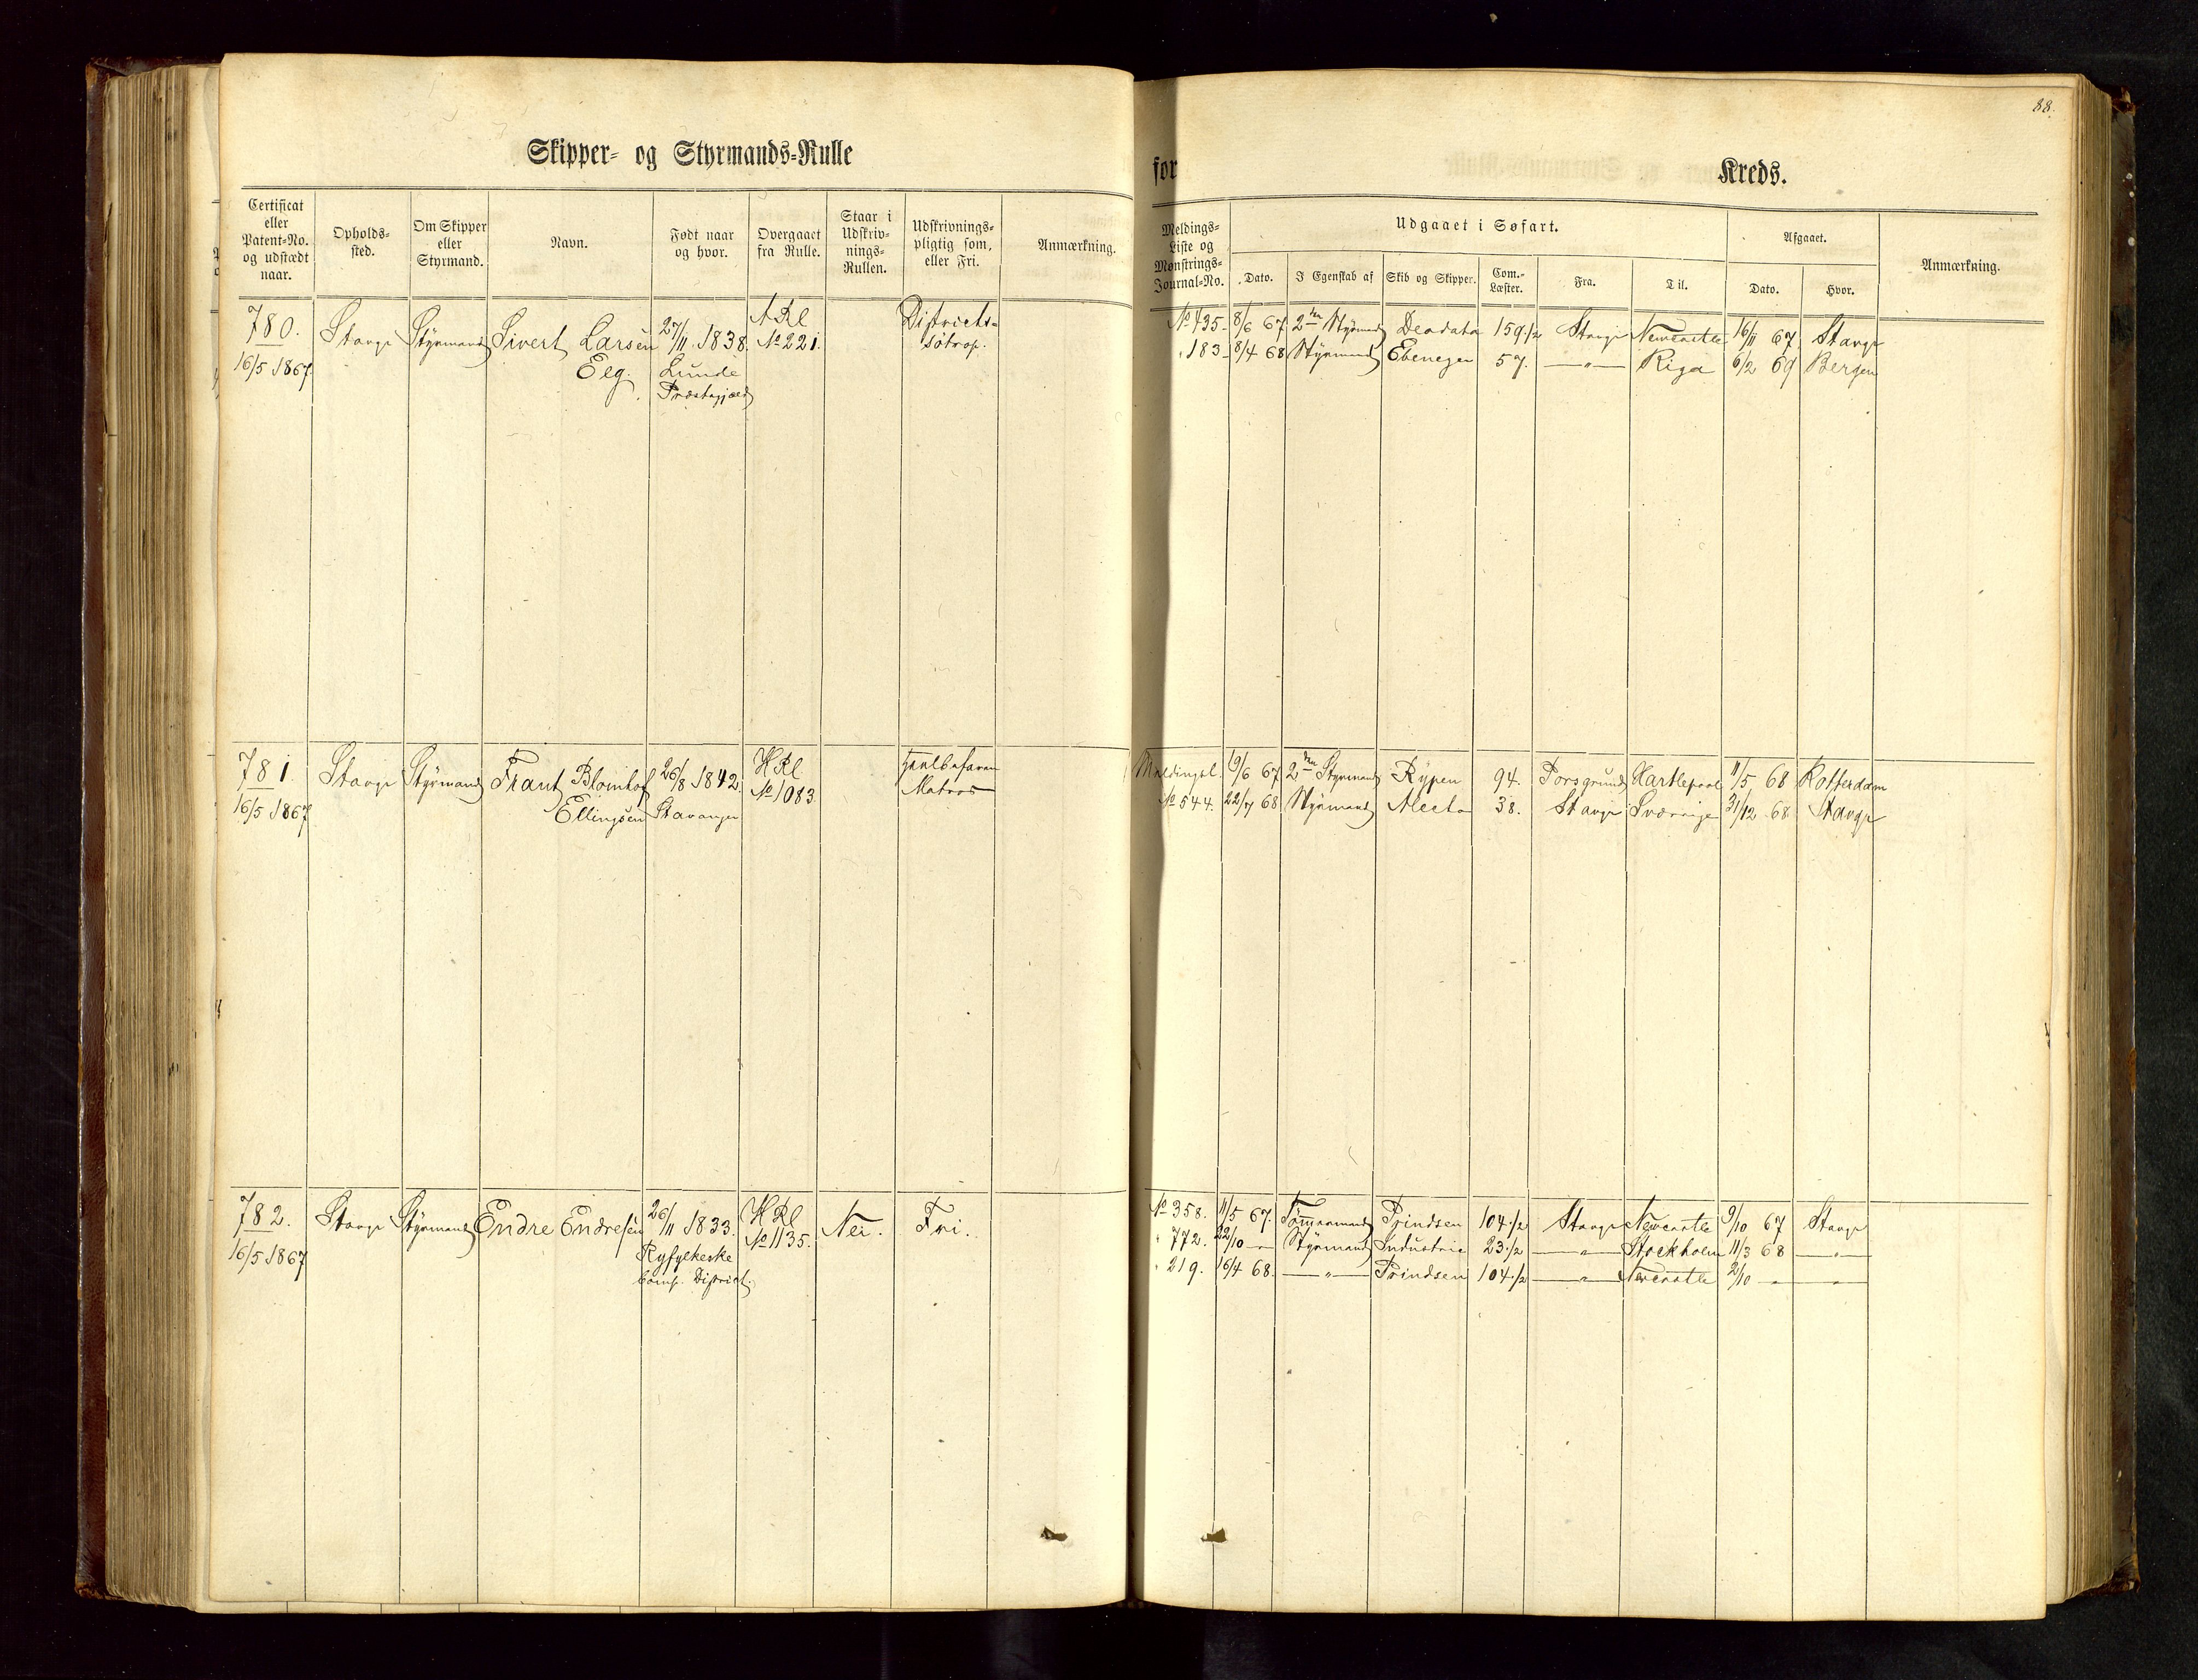 88.
Skipper- og Styrmands-Rulle
for Kreds.
Certificat eller Patent-No. og udstædt naar.
Opholds-sted.
Om Skipper eller Styrmand.
Navn.
Født naar og hvor.
Overgaaet fra Rulle.
Staar i Udskriv-nings-Rullen.
Udskrivnings-pligtig som, eller Fri.
Anmærkning.
Meldings-Liste og Mønstrings-Journal-No.
Udgaaet i Søfart.
Dato.
I Egenskab af
Skib og Skipper.
Com.-Læster.
Fra.
Til.
Afgaaet.
Dato.
Hvor.
Anmærkning.
780.
16/5 1867.
Stavgr
Styrmand
Sivert Larsen
Elg.
27/11 1838.
Lunde
Præstegjæld
ARl
No 221.
Districts-
søtrop.
No 435. 8/6 67. 2den Styrmd Deodata 159 1/2 Stavgr Newcastle 16/11 67. Stavgr
" 183 8/4 68 Styrmand Ebeneger 57. —"— Riga 6/2 69 Bergen
781
16/5 1867
Stavgr
Styrmand
Frant Blomhof
Ellingsen
26/8 1842.
Stavanger
HRl
No 1083.
Halvbefaren
Matros
Meldingsl. 19/6 67. 2den Styrmand Rypen 94. Porsgrund Hartlepool 11/5 68 Rotterdam
No 544. 22/7 68 Styrmand Alecto 38. Stavgr Sverrige 31/12 68. Stavgr
782.
16/5 1867
Stavgr
Styrmand
Endre Endresen
26/11 1833.
Ryfylkeske
Comp. District.
HRl
No 1135.
Nei.
Fri.
No 358. 11/5 67. Tømmermand Prindsen 104 1/2 Stavgr Newcastle 9/10 67 Stavgr
" 772. 22/10 — Styrmand Industrie 23 1/2 —"— Stockholm 11/3 68 —"—
" 219. 16/4 68. —"— Prindsen 104 1/2 —"— Newcastle 2/10 — —"—